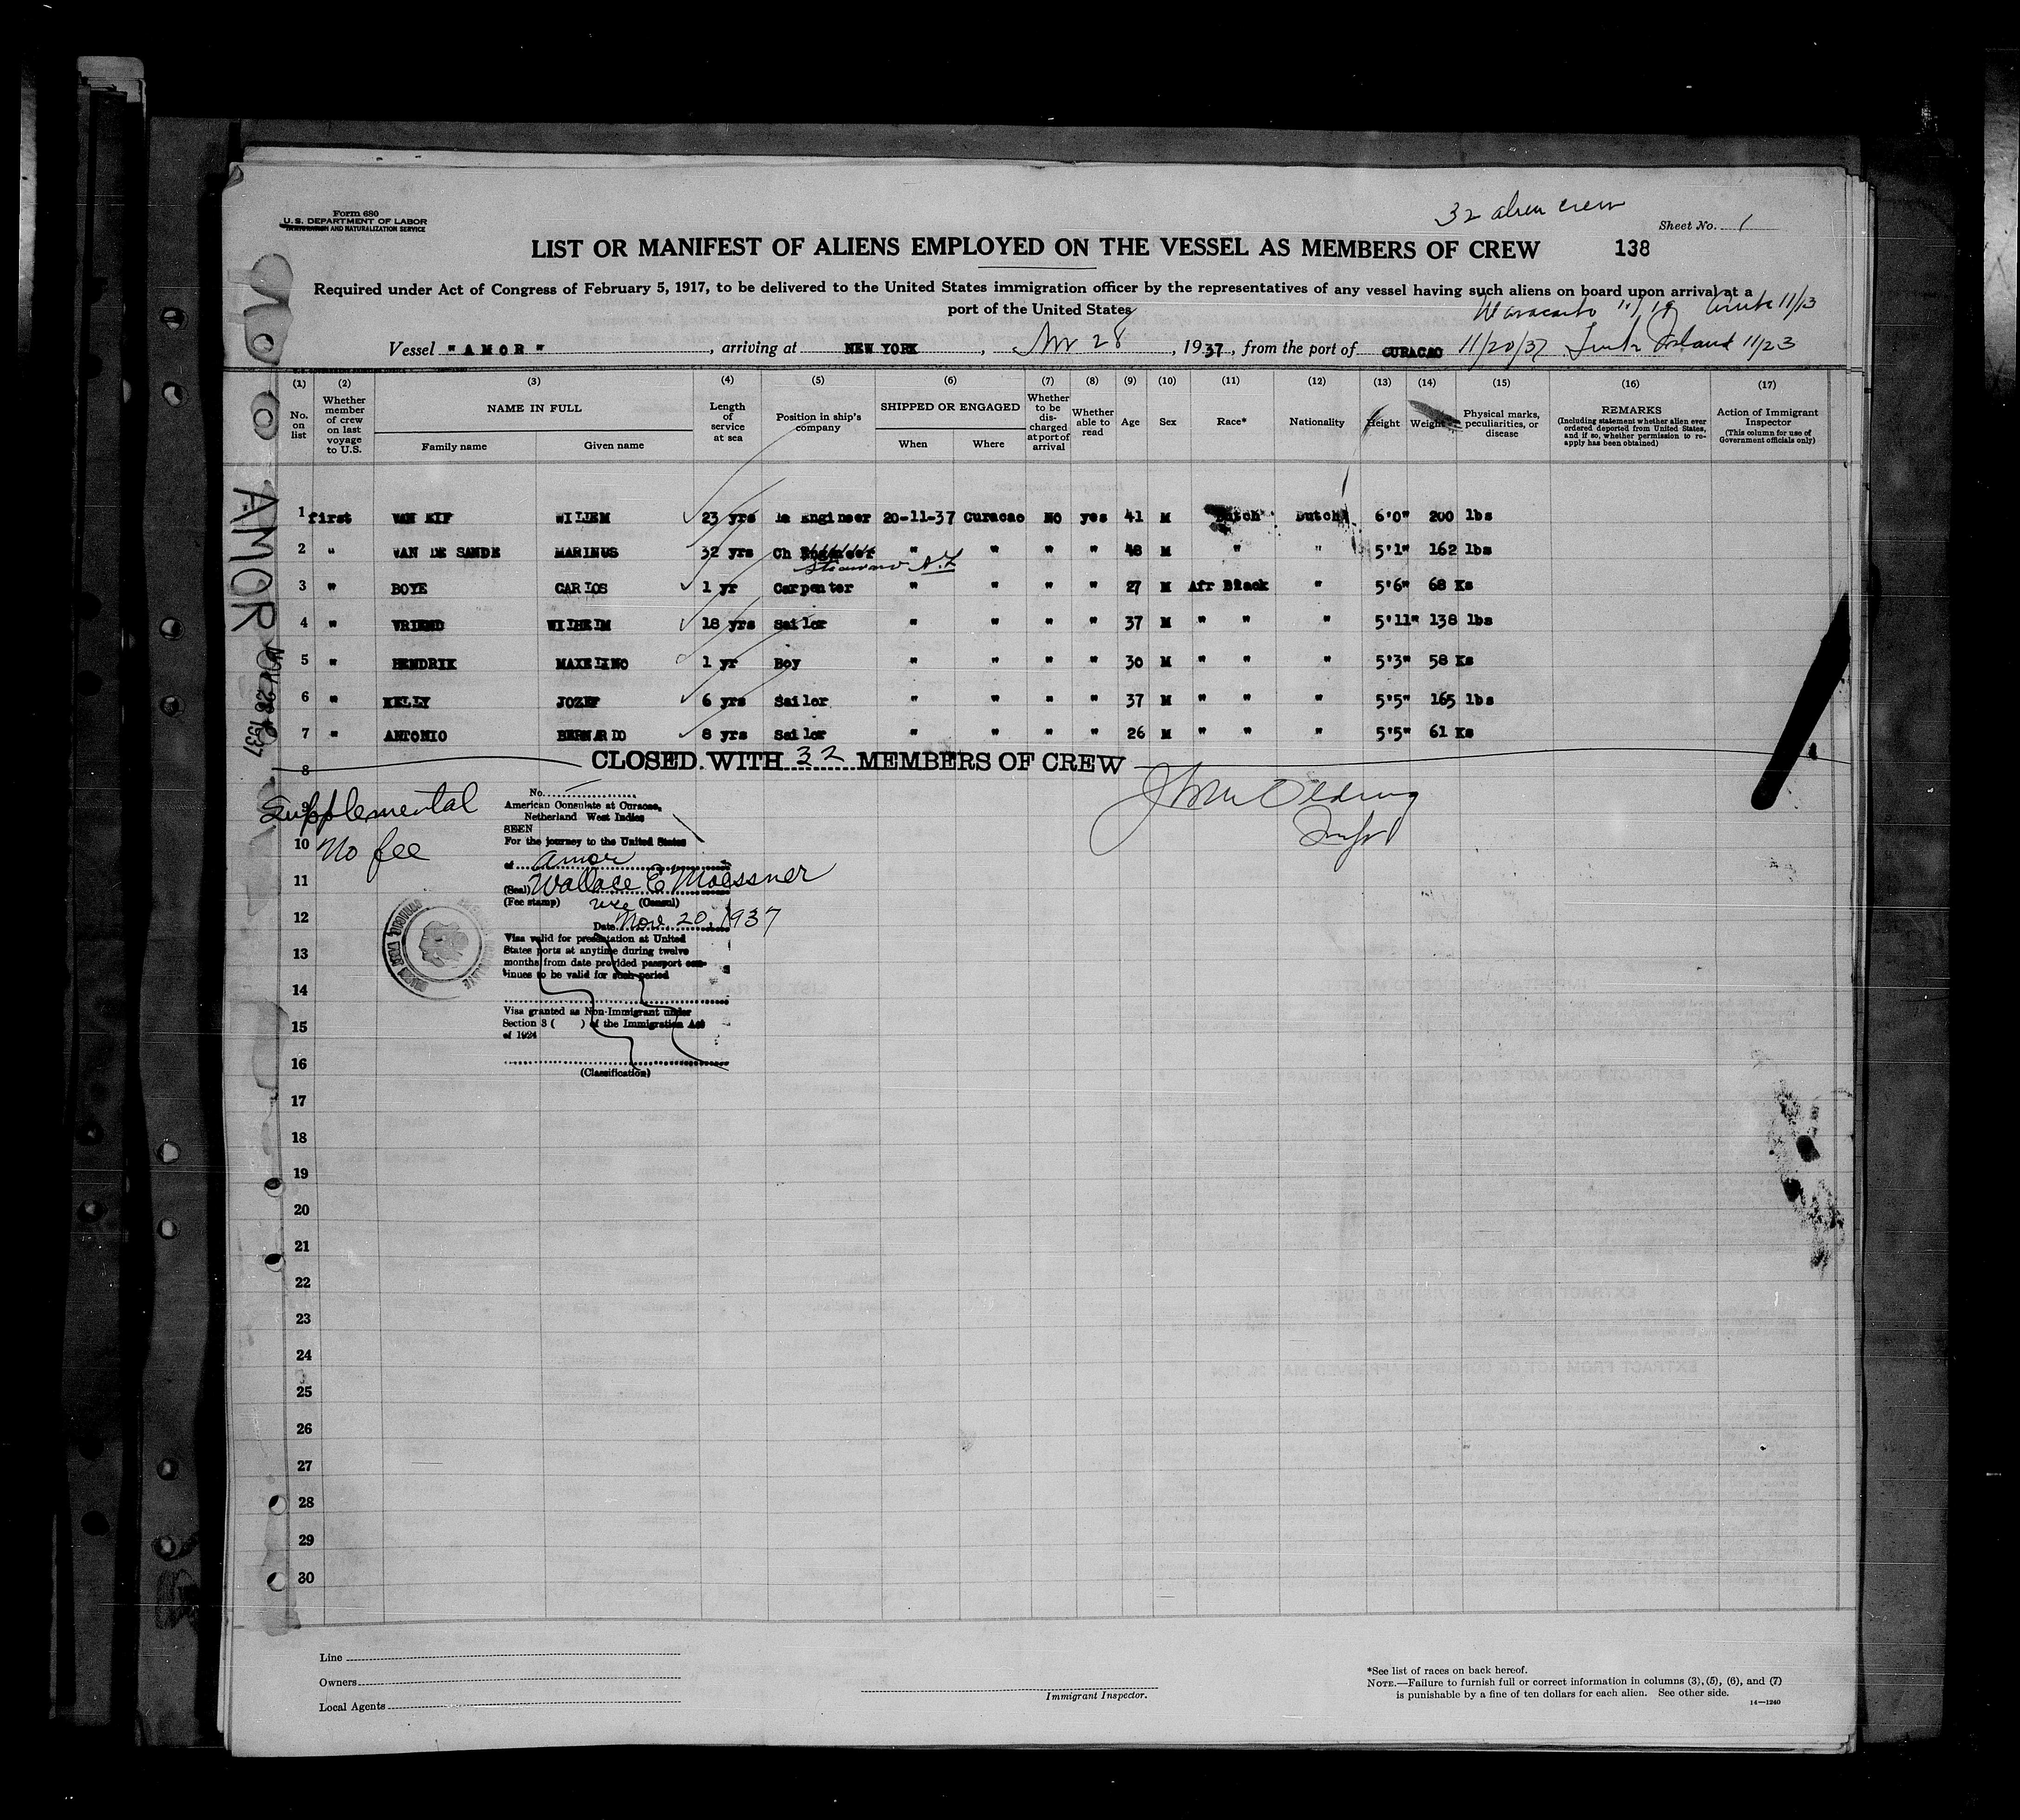 Form 680
U. S. DEPARTMENT OF LABOR
IMMIGRATION AND NATURALIZATION SERVICE
32 alien crew
Sheet No. 1
LIST OR MANIFEST OF ALIENS EMPLOYED ON THE VESSEL AS MEMBERS OF CREW 138
Required under Act of Congress of February 5, 1917, to be delivered to the United States immigration officer by the representatives of any vessel having such aliens on board upon arrival at a
port of the United States
11/19 11/13
Vessel "AMOR", arriving at NEW YORK, Nov 28, 1937, from the port of CURACAO 11/20/37 Island 11/23
(1) (2) (3) (4) (5) (6) (7) (8) (9) (10) (11) (12) (13) (14) (15) (16) (17)
No. on list
Whether member of crew on last voyage to U.S.
NAME IN FULL
Family name
Given name
Length of service at sea
Position in ship's company
SHIPPED OR ENGAGED
When
Where
Whether to be discharged at port of arrival
Whether able to read
Age
Sex
Race*
Nationality
Height
Weight
Physical marks, peculiarities, or disease
REMARKS
(Including statement whether alien ever ordered deported from United States, and if so, whether permission to reapply has been obtained)
Action of Immigrant Inspector
(This column for use of Government officials only)
1 first VAN WILLEM 23 yrs Engineer 20-11-37 Curacao NO yes 41 M Dutch Dutch 6'0" 200 lbs
2 " VAN DE SANDE MARINUS 32 yrs Ch Engineer " " " " 48 M " " 5'1" 162 lbs
3 " BOYE CARLOS 1 yr Carpenter " " " " 27 M Afr Black " 5'6" 68 Ks
4 " VRIEND WILHELM 18 yrs Sailor " " " " 37 M " " " 5'11" 138 lbs
5 " HENDRIK MAXELINO 1 yr Boy " " " " 30 M " " " 5'3" 58 Ks
6 " KELLY JOZEF 6 yrs Sailor " " " " 37 M " " " 5'5" 165 lbs
7 " ANTONIO BERNARDO 8 yrs Sailor " " " " 26 M " " " 5'5" 61 Ks
CLOSED WITH 32 MEMBERS OF CREW
8
9
10
11
12
13
14
15
16
17
18
19
20
21
22
23
24
25
26
27
28
29
30
Supplemental
No fee
No.
American Consulate at Curacao,
Netherland West Indies
SEEN
For the journey to the United States
of Amor
(Seal) Wallace E Moessner
(Fee stamp) vice (Consul)
Date Nov. 20, 1937
Visa valid for presentation at United
States ports at anytime during twelve
months from date provided passport con-
tinues to be valid for such period
Visa granted as Non-Immigrant under
Section 3 ( ) of the Immigration Act
of 1924
(Classification)
AMOR
NOV 28 1937
Line
Owners
Local Agents
Immigrant Inspector.
*See list of races on back hereof.
NOTE.—Failure to furnish full or correct information in columns (3), (5), (6), and (7)
is punishable by a fine of ten dollars for each alien. See other side.
14—1240